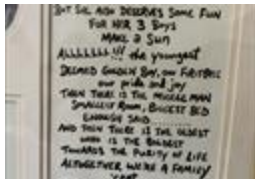 BUT SHE ALSO DESERVES SOME FUN
FOR HER 3 BOYS
MAKE A SUN
ALLLLLLLL!!! the youngest
DEEMED GOLDEN BOY, OUR FIRST BORN
our pride and joy
THEN THERE IS THE MIDDLE MAN
SMALLEST ROOM, BIGGEST BED
ENOUGH SAID
AND THEN THERE IS THE OLDEST
WHO IS THE BOLDEST
TOWARDS THE PURITY OF LIFE
ALTOGETHER WE'RE A FAMILY